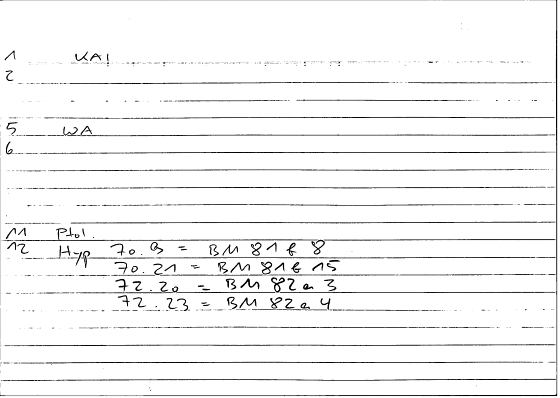 1 KAI
2
5 WA
6
11 Ptol.
12 Hyp 70.9 = BM 81b 8
70.21 = BM 81b 15
72.20 = BM 82a 3
72.23 = BM 82a 4